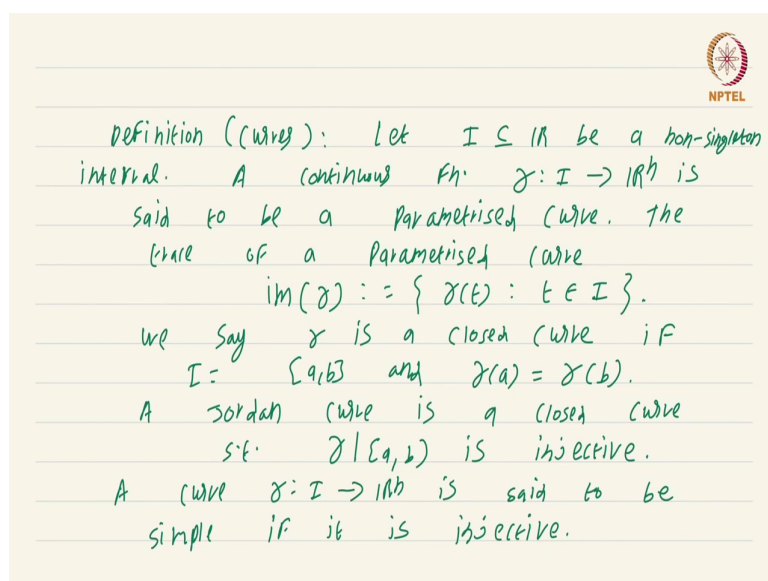 NPTEL
Definition (Curves): Let I ⊆ ℝ be a non-singleton
interval. A continuous Fn. γ: I → ℝⁿ is
said to be a Parametrised curve. The
trace of a Parametrised curve
im(γ) := { γ(t) : t ∈ I }.
we say γ is a closed curve if
I = [a,b] and γ(a) = γ(b).
A Jordan curve is a closed curve
s.t. γ|[a,b) is injective.
A curve γ: I → ℝⁿ is said to be
simple if it is injective.